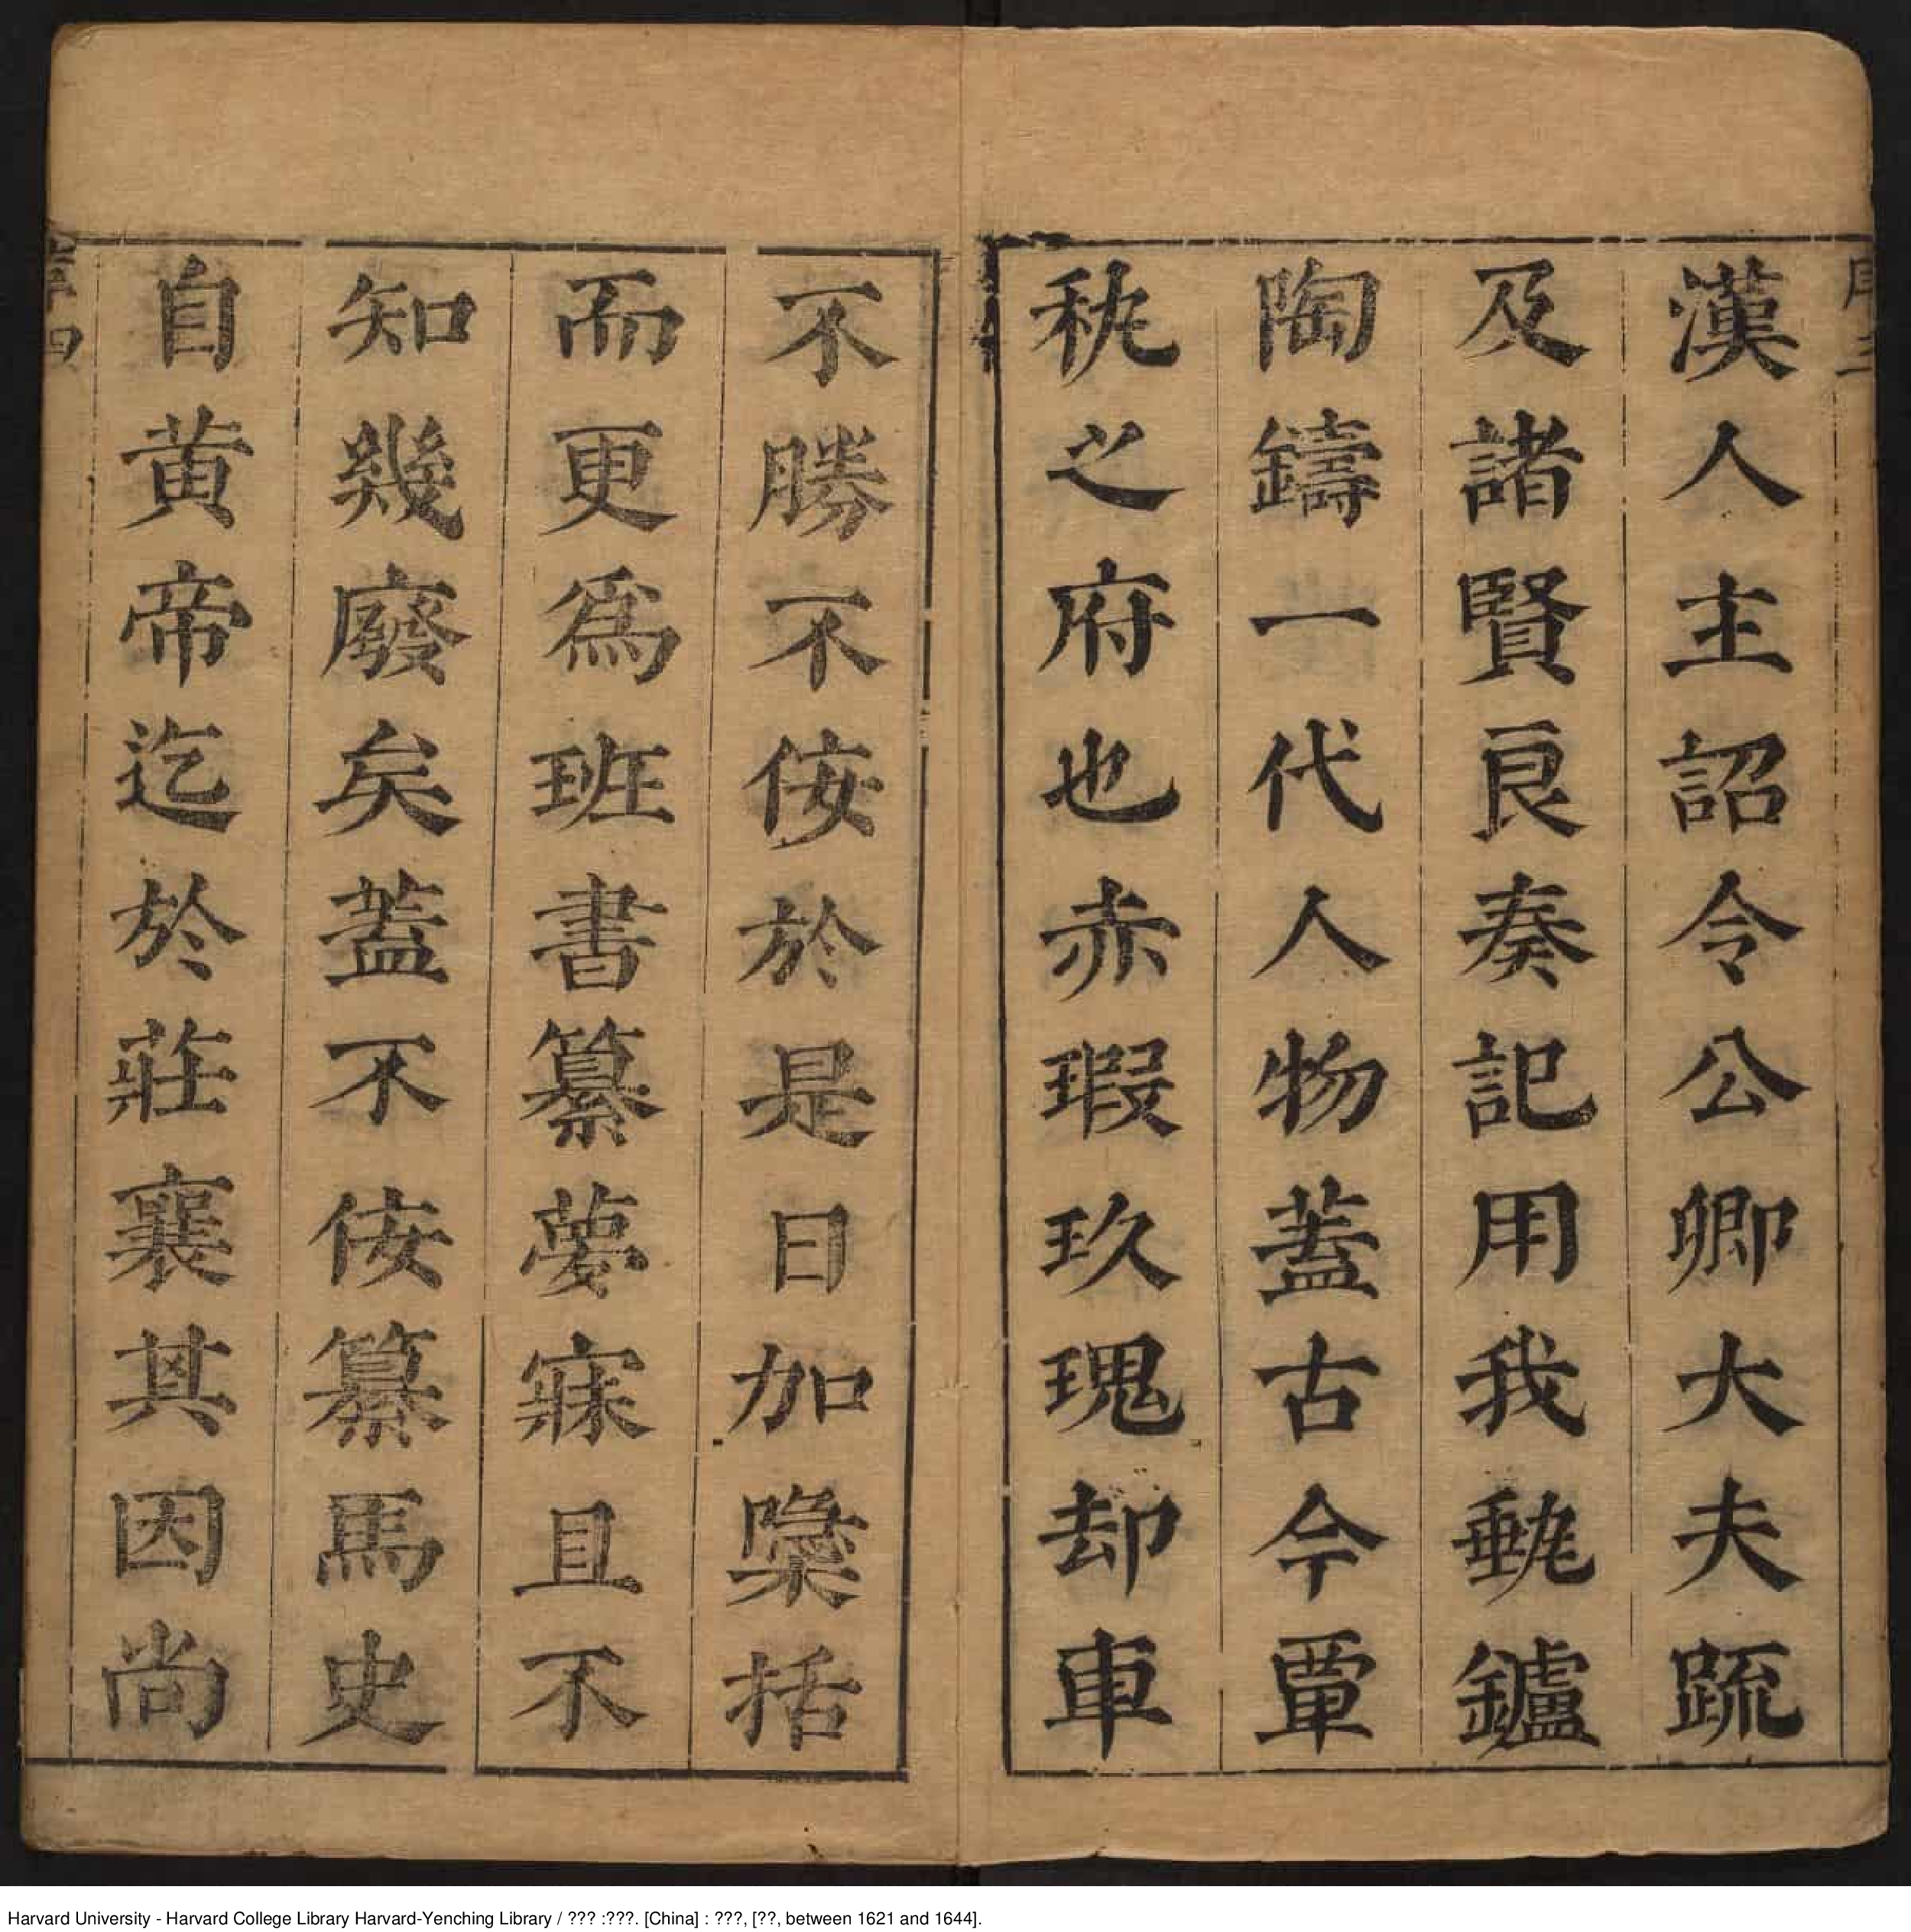 序三
漢人主詔令公卿大夫䟽
及諸賢良奏記用我鑪
陶鑄一代人物蓋古今覃
秇之府也赤瑕玖瑰却車
不勝不佞於是日加檃括
而更爲班書纂夢寐且不
知幾廢矣蓋不佞纂馬史
自黄帝迄於莊襄其因尚
序四
Harvard University - Harvard College Library Harvard-Yenching Library / ??? :???. [China] : ???, [??, between 1621 and 1644].